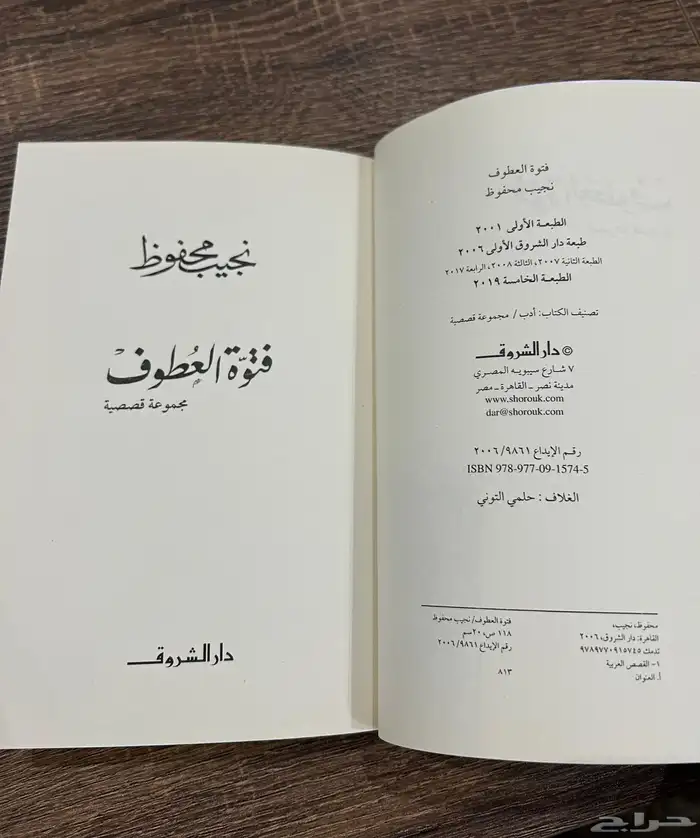 نجيب محفوظ
فتوّة العُطوف
مجموعة قصصية
دار الشروق
فتوة العطوف
نجيب محفوظ
الطبعـة الأولى ٢٠٠١
طبعة دار الشروق الأولى ٢٠٠٦
الطبعة الثانية ٢٠٠٧، الثالثة ٢٠٠٨، الرابعة ٢٠١٧
الطبعـة الخامسة ٢٠١٩
تصنيف الكتاب: أدب / مجموعة قصصية
© دار الشروق
٧ شارع سيبويه المصري
مدينة نصر - القاهرة - مصر
www.shorouk.com
dar@shorouk.com
رقم الإيداع ٩٨٦١ /٢٠٠٦
ISBN 978-977-09-1574-5
الغلاف : حلمي التوني
محفوظ، نجيب،
فتوة العطوف/ نجيب محفوظ
القاهرة: دار الشروق، ٢٠٠٦،
١١٨ ص، ٢٠سم
تدمك ٩٧٨٩٧٧٠٩١٥٧٤٥
١- القصص العربية
أ. العنوان
رقم الإيداع ٩٨٦١ /٢٠٠٦
٨١٣
حراج